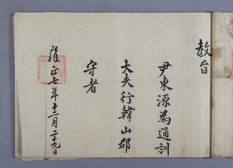 教旨
尹東源為通訓
大夫行韓山郡
守者
雍正七年十二月二十九日